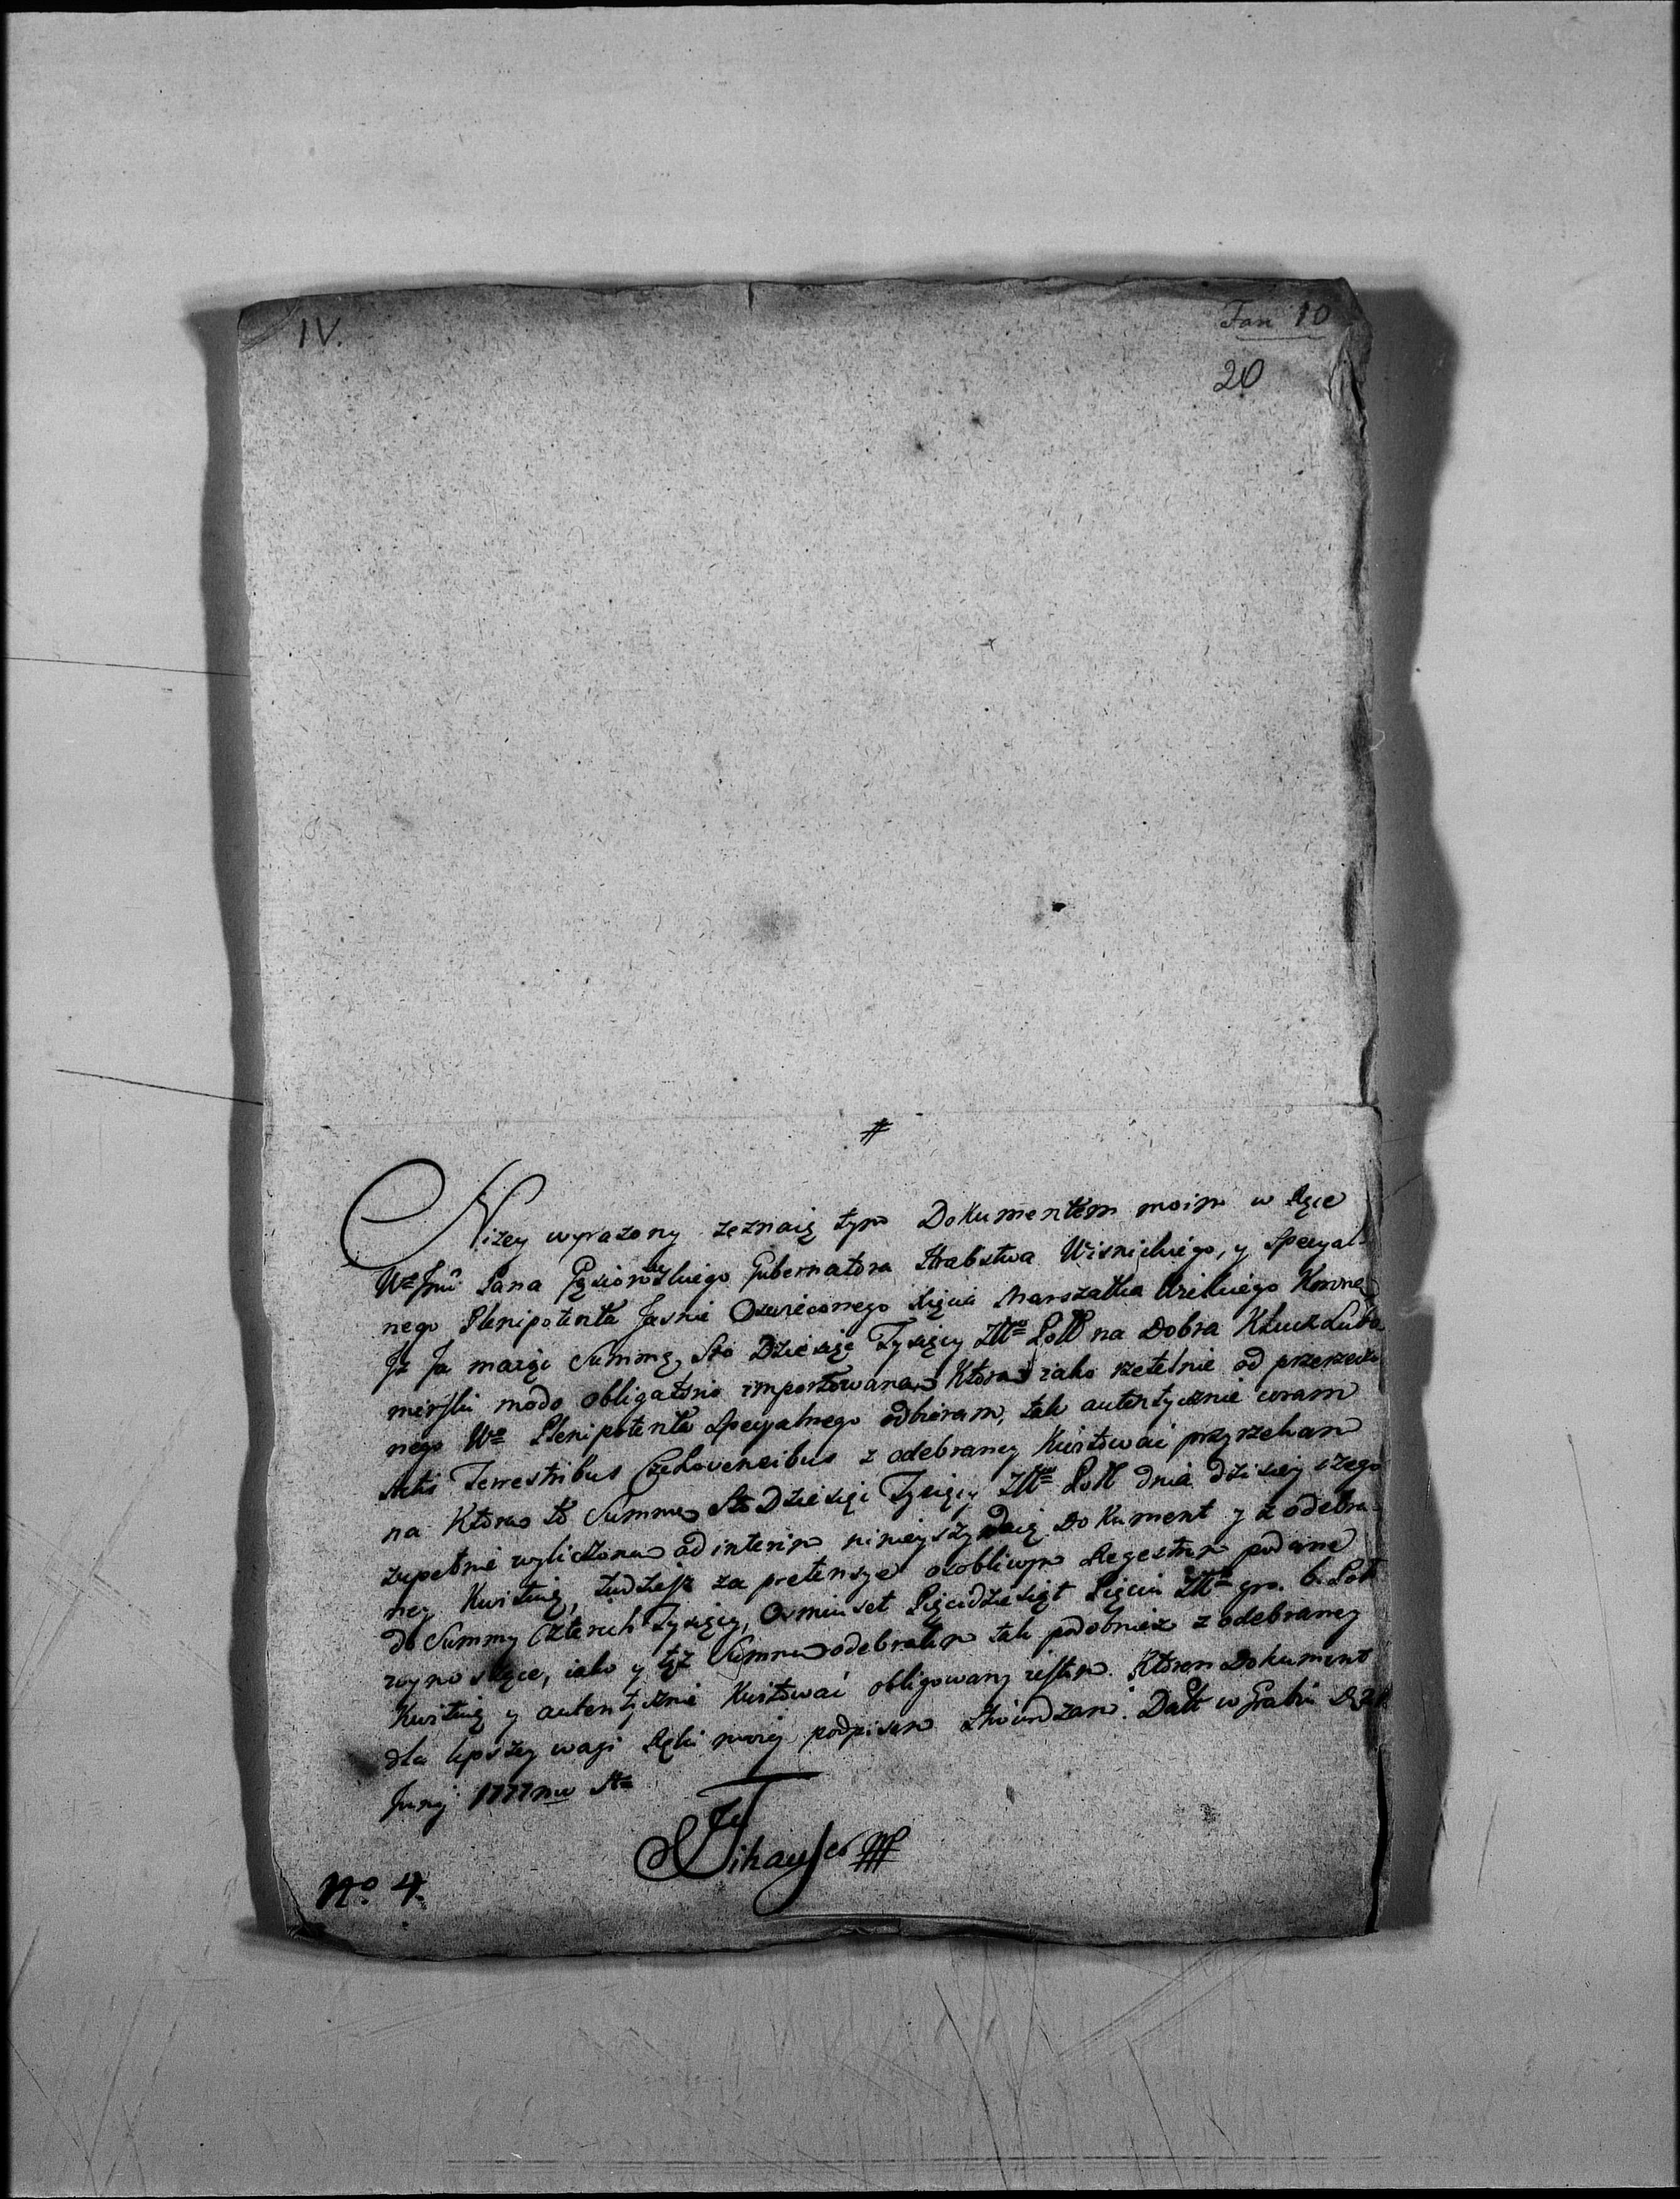 IV.
Fan 10
20
#
Niżey wyrażony zeznaię tym Dokumentem moim w Ręce
Wo Jmci Pana Gąsiorowskiego Gubernatora Hrabstwa Wisnickiego, y Specyal-
nego Plenipotenta Jasnie Oswieconego Xięcia Marszałka Wielkiego Koronne
Jż Ja maiąc Summę Sto Dziesięc Tysięcy Złłch Poll na Dobra Klucz Lubo
mirski modo obligatorio importowaną Ktorą iako rzetelnie od przerzeczo
nego Wo Plenipotenta Specyalnego odbieram, tak autentycznie coram
Actis Terrestribus Czchoviensibus z odebraney Kwitowac przyrzekam
na Ktorą to Summę Sto Dziesięc Tysięcy Złłch Poll dnia dzisieyszego
zupełnie wyliczoną ad interim ninieyszy daię Dokument y z odebra-
ney Kwituię, tudziesz za pretensye osobliwym Regestrem podane
do Summy Czterech Tysięcy, Osmiuset Pięcdziesiąt Pięciu Złłch gro. 6. Pol
wynoszące, iako y tęż Summę odebrałem tak podobnież z odebraney
Kwituię y autentycznie Kwitowac obligowany iestem. Ktoren Dokument
dla lepszey wagi Ręki moiey podpisem ztwierdzam. Datt w Grabiu D.
Junij 1777mo Ao
No 4.